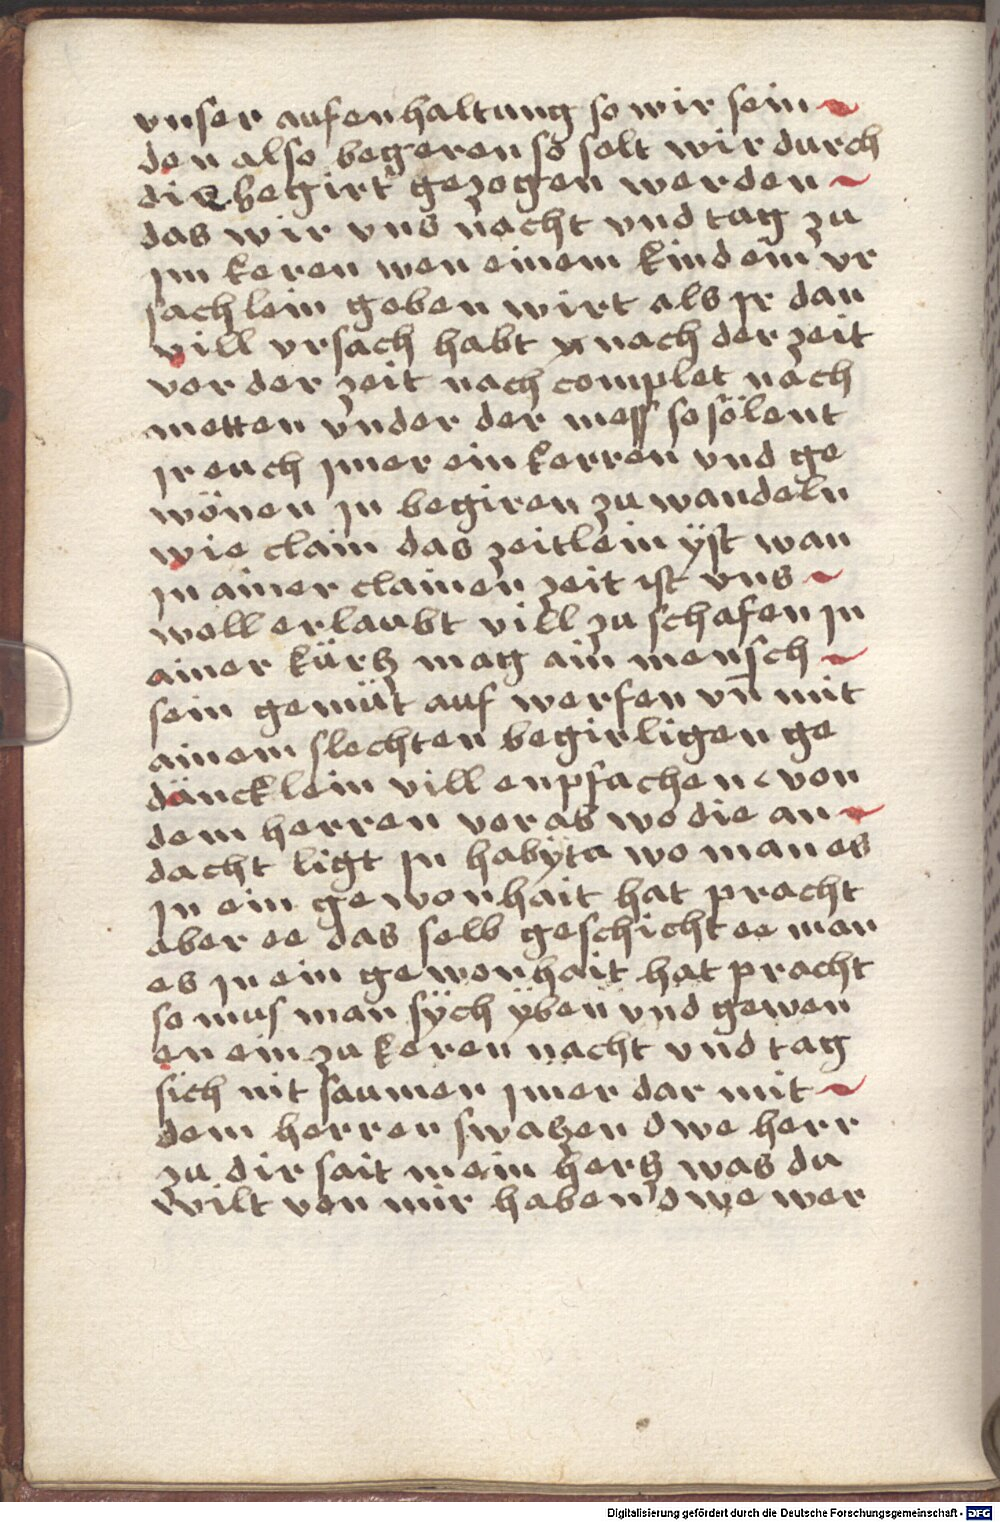 vnser aufenhaltung so wir sein
den also begeren so solt wir durch
die begirt gezogen werden
das wir vns nacht vnd tag zu
jm keren wen einem kind ein vr
sachlein geben wirt als jr dan
vill vrsach habt nach der zeit
vor der zeit nach complet nach
metten vnder der mess so sölent
jr euch jmer ein kerren vnd ge
wönen jn begiren zu wandeln
wie clain das zeitlein ÿst wan
jn ainer clainen zeit ist vns
woll erlaubt vill zu schafen jn
ainer kürtz mag ain mensch
sein gemüt auf werfen vn̄ mit
ainem slechten begirligen ge
däncklein vill enpfachen von
dem herren vorab wo die an
dacht ligt jn habÿta wo man es
jn ein gewonhait hat pracht
aber ee das selb geschicht ee man
es jn ein gewonhait hat pracht
so mus man sÿch ÿben vnd gewen
en ein zu keren nacht vnd tag
sich nit saumen jmer dar mit
dem herren swatzen owe herr
zu dir sait mein hertz was du
wilt von mir haben owe wer
Digitalisierung gefördert durch die Deutsche Forschungsgemeinschaft - DFG